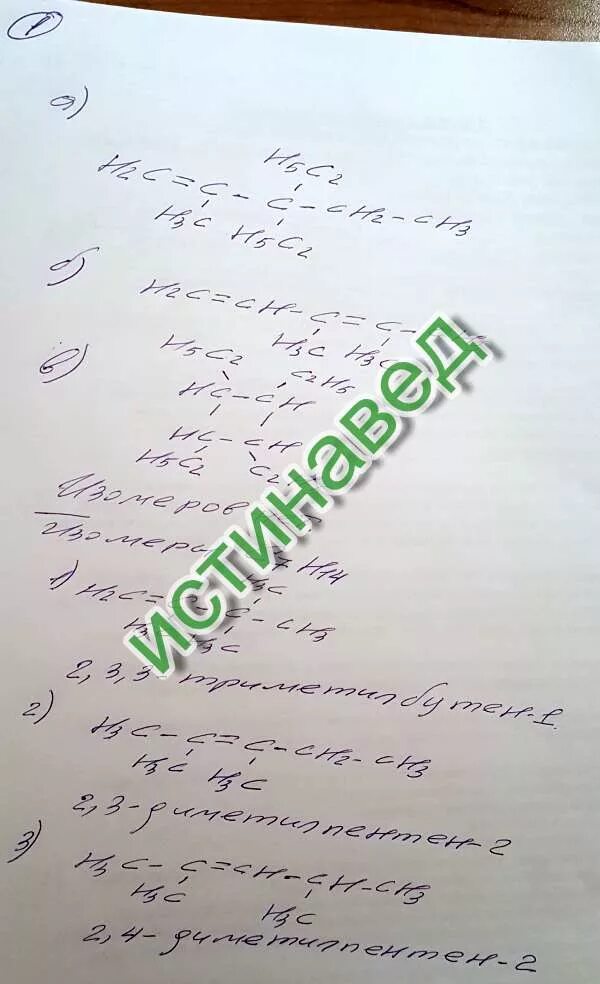 1
а)
H5C2
H2C=C-C-CH2-CH3
H3C H5C2
б)
H2C=CH-C=C-
H3C H3C
в)
H5C2 C2H5
HC-CH
HC-CH
H5C2
Изомеров
H14
1)
H2C=
-CH3
H3C
2,3,3 триметилбутен-1.
2)
H3C-C=C-CH2-CH3
H3C H3C
2,3-диметилпентен-2
3)
H3C-C=CH-CH-CH3
H3C H3C
2,4-диметилпентен-2
истинавед